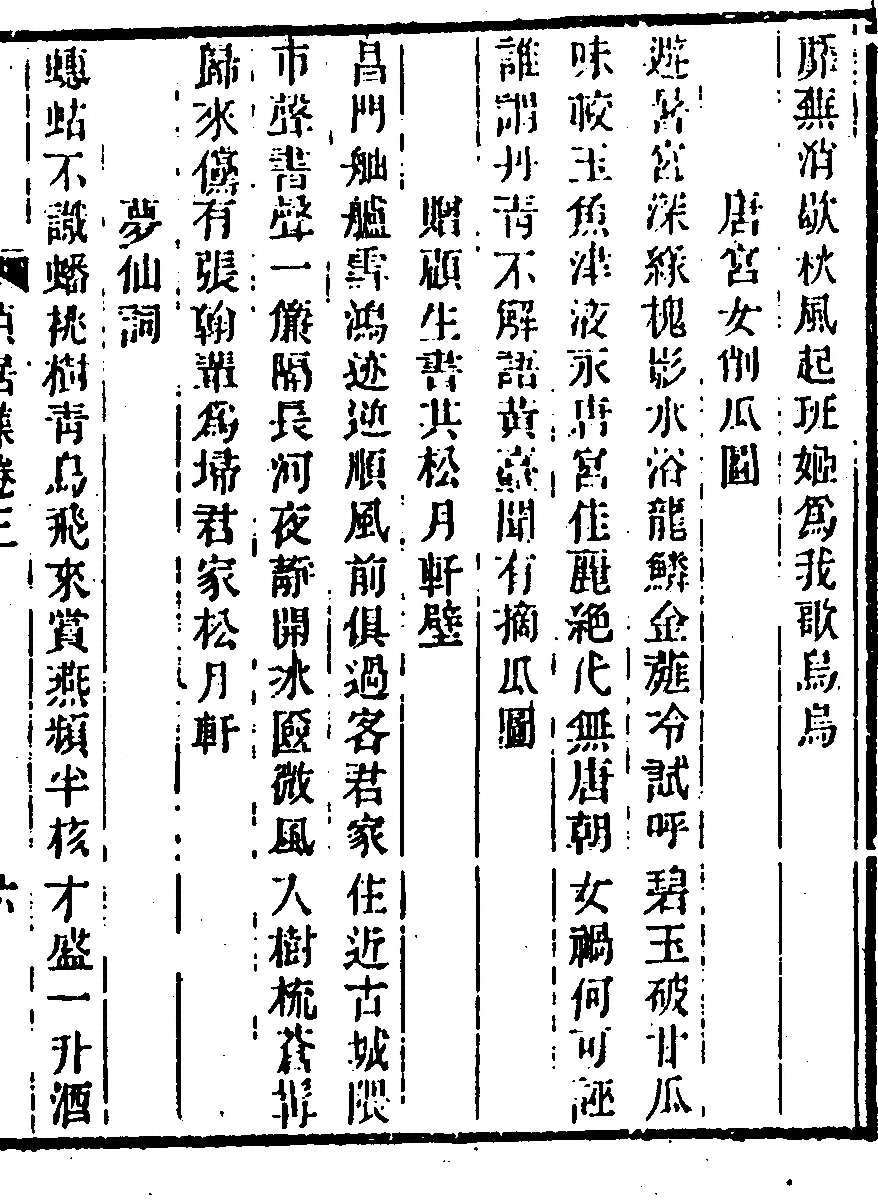 蘼蕪消歇秋風起班姬為我歌烏烏
唐宮女削瓜圖
避暑宮深綠槐影水浴龍鱗金蓰冷試呼碧玉破甘瓜
味較玉魚津液永唐宮佳麗絕代無唐朝女禍何可誣
誰謂丹青不解語黃臺聞有摘瓜圖
贈顧生書其松月軒壁
昌門舳艫雲鴻迹逆順風前俱過客君家住近古城隈
市聲書聲一簾隔長河夜靜開冰匳微風入樹梳蒼髯
歸來儻有張翰輩為埽君家松月軒
夢仙詞
蟪蛄不識蟠桃樹青鳥飛來賞燕頻半核才盛一升酒
貞居集卷三
六